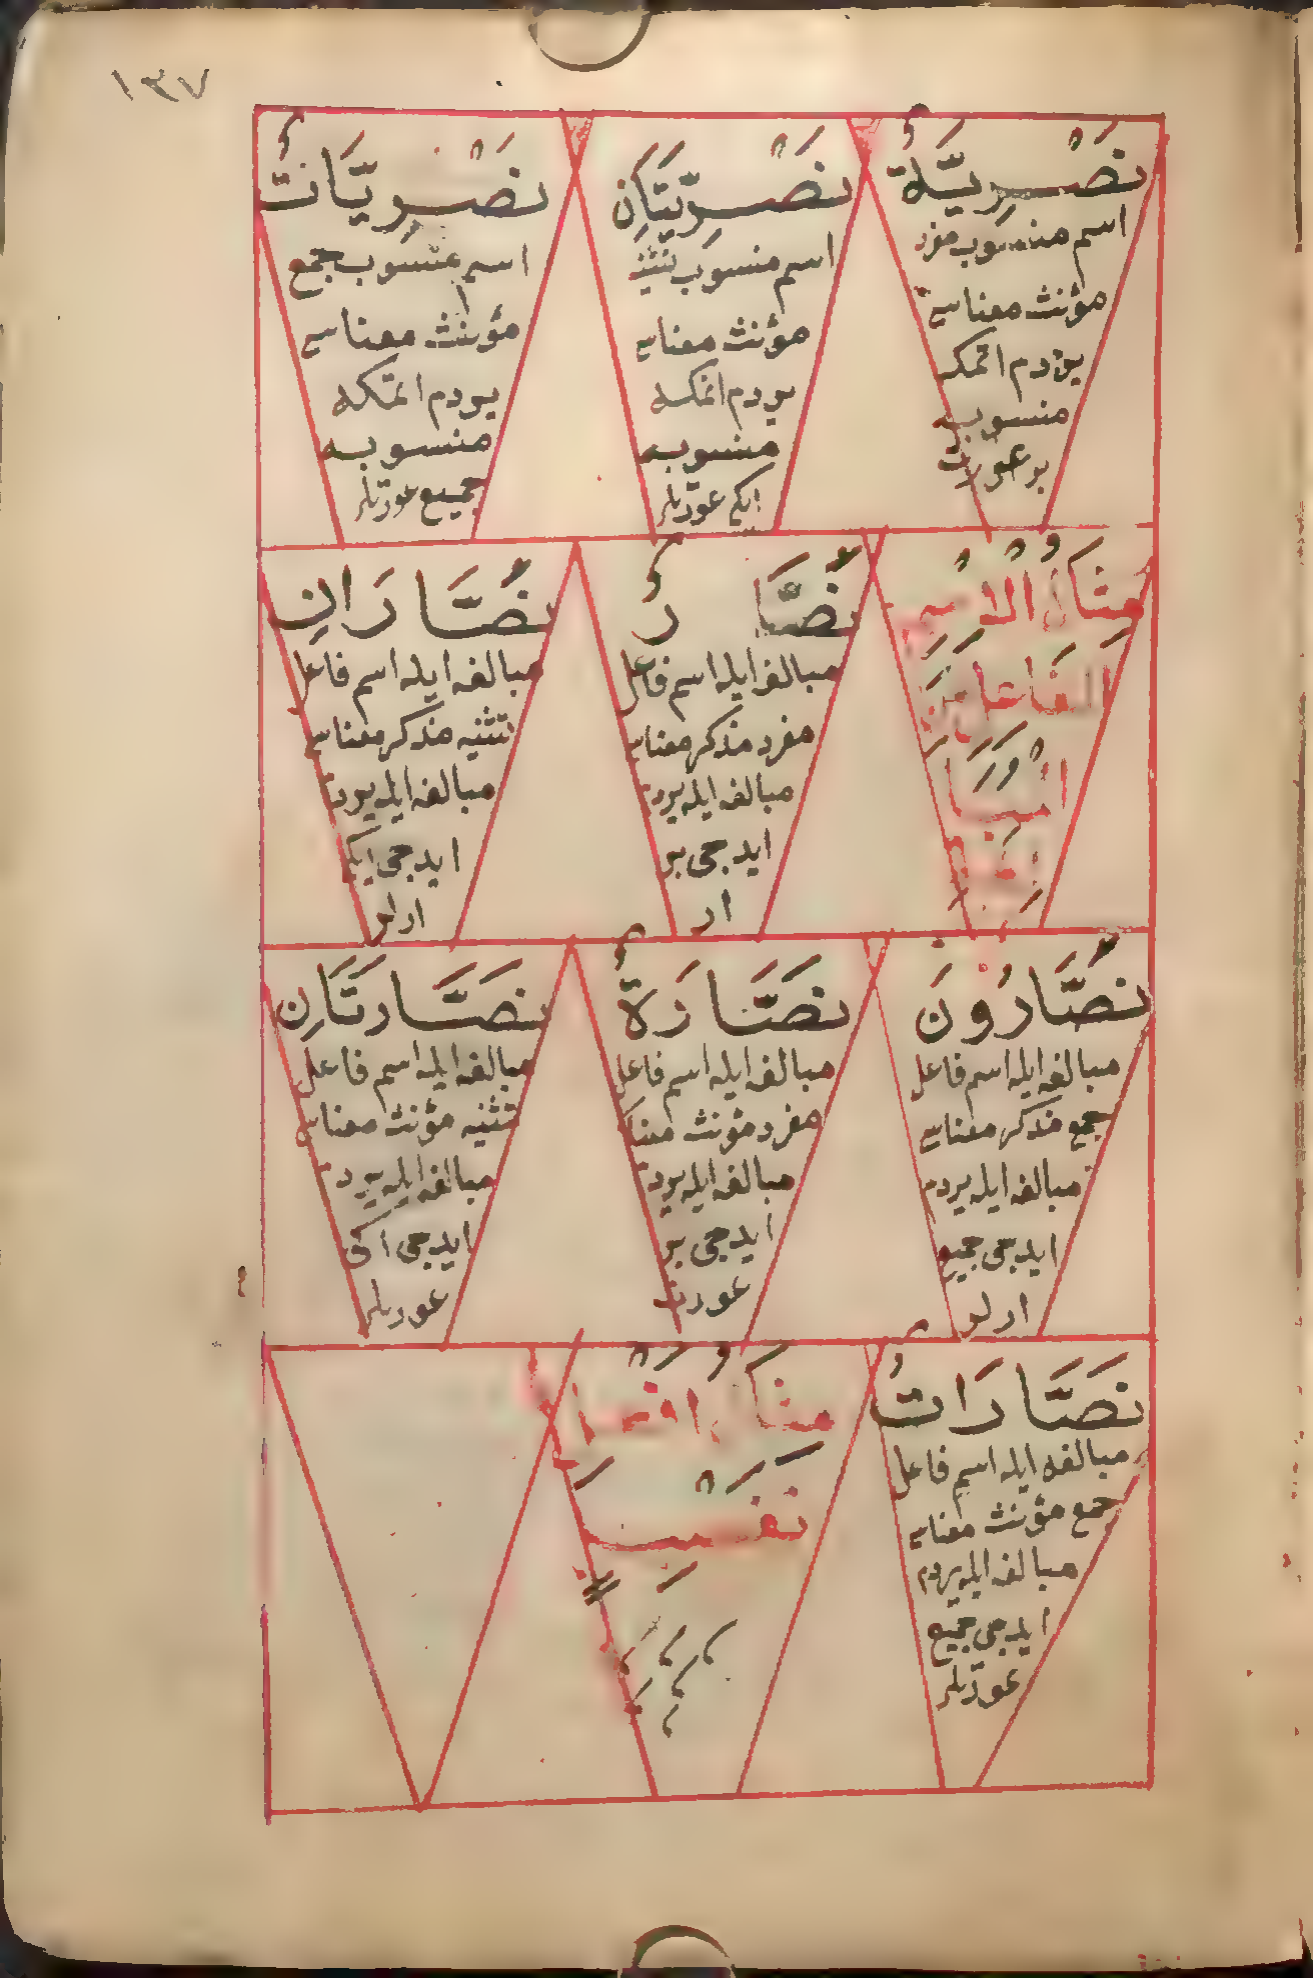 ١٣٧
نَصْرِيَّةٌ
اسم منسوب مفرد
مؤنث معناسى
يردم اتمكه
منسوبه
بر عورت
نَصْرِيَّتَانِ
اسم منسوب تثنيه
مؤنث معناسى
يردم اتمكه
منسوبه
ايكى عورتلر
نَصْرِيَّاتٌ
اسم منسوب جمع
مؤنث معناسى
يردم اتمكه
منسوبه
جميع عورتلر
مثال الاسم
الفاعل
نُصَّارٌ
مبالغه ايله اسم فاعل
مفرد مذكر معناسى
مبالغه ايله يردم
ايدجى بر
ار
نُصَّارَانِ
مبالغه ايله اسم فاعل
تثنيه مذكر معناسى
مبالغه ايله يردم
ايدجى ايكى
ارلر
نُصَّارُونَ
مبالغه ايله اسم فاعل
جمع مذكر معناسى
مبالغه ايله يردم
ايدجى جميع
ارلر
نَصَّارَةٌ
مبالغه ايله اسم فاعل
مفرد مؤنث معناسى
مبالغه ايله يردم
ايدجى بر
عورت
نَصَّارَتَانِ
مبالغه ايله اسم فاعل
تثنيه مؤنث معناسى
مبالغه ايله يردم
ايدجى اكى
عورتلر
نَصَّارَاتٌ
مبالغه ايله اسم فاعل
جمع مؤنث معناسى
مبالغه ايله يردم
ايدجى جميع
عورتلر
مثال افعل